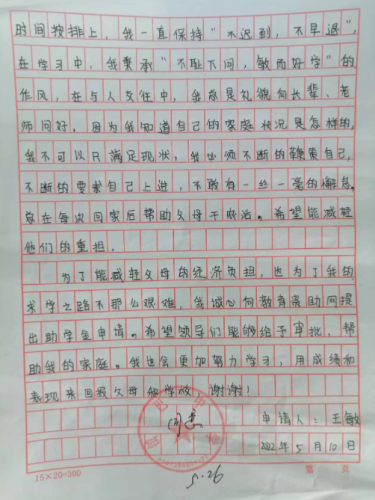 时间按排上，我一直保持“不迟到，不早退”，
在学习中，我秉承“不耻下问，敏而好学”的
作风，在与人交往中，我总是礼貌向长辈、老
师问好。因为我知道自己的家庭状况是怎样的，
我不可以只满足现状，我必须不断的鞭策自己，
不断的要求自己上进，不敢有一丝一毫的懈怠。
每次回家后帮助父母干农活。希望能减轻
他们的重担。
为了能减轻父母的经济负担，也为了我的
求学之路不那么艰难，我诚心向教育资助网提
出助学金申请。希望领导们能够给予审批，帮
助我的家庭。我也会更加努力学习，用成绩和
表现来回报父母和学校，谢谢！
同意
申请人：王敏
2022年5月10日
5.26
15×20=300
第 页